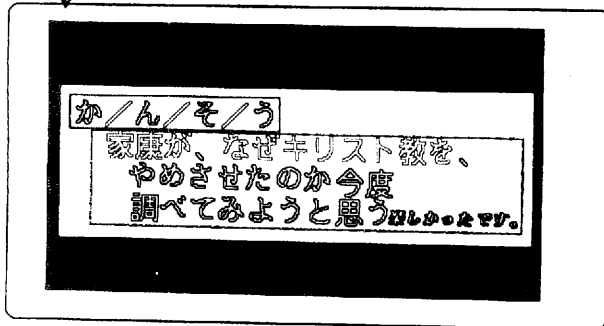 か/ん/そ/う
家康が、なぜキリスト教を、
やめさせたのか今度
調べてみようと思う